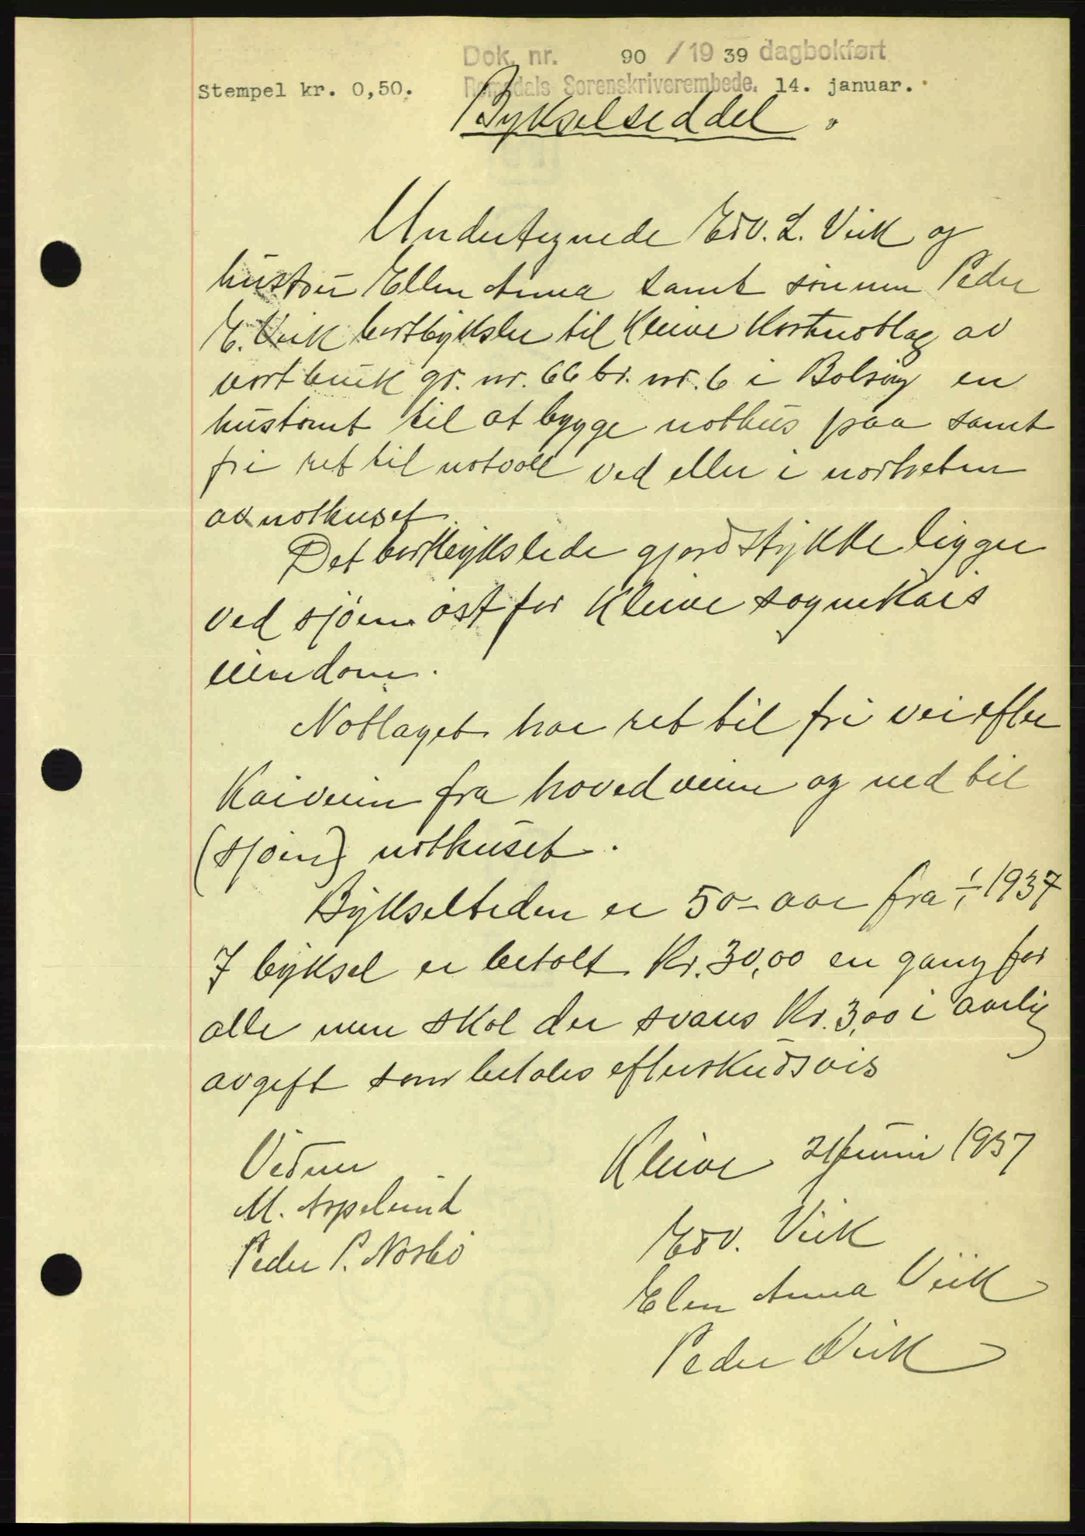 Dok. nr. 90 / 19 39 dagbokført
Stempel kr. 0,50. Romsdals Sorenskriverembede. 14. januar.
Bykselseddel.
Undertegnede Edv. L. Viik og
hustru Ellen Anna samt sønnen Peder
E. Viik bortbyksler til Kleive Kastnotlag av
vort bruk gr. nr. 66 br. nr. 6 i Bolsøy en
hustomt til at bygge nothus paa samt
fri ret til notvoll ved eller i nærheten
av nothuset.
Det bortbykslede gjordstykke ligger
ved sjøen øst for Kleive sognekais
eiendom.
Notlaget har ret til fri vei efter
Kaiveien fra hovedveien og ned til
(sjøen) nothuset.
Bykseltiden er 50 - aar fra 1/1 1937
I byksel er betalt Kr. 30,00 en gang for
alle men skal der svares Kr. 3,00 i aarlig
avgift som betales efterskudsvis
Kleive 21 juni 1937
Vidner
M. Aspelund
Peder P. Nosbø
Edv. Viik
Elen Anna Viik
Peder Viik